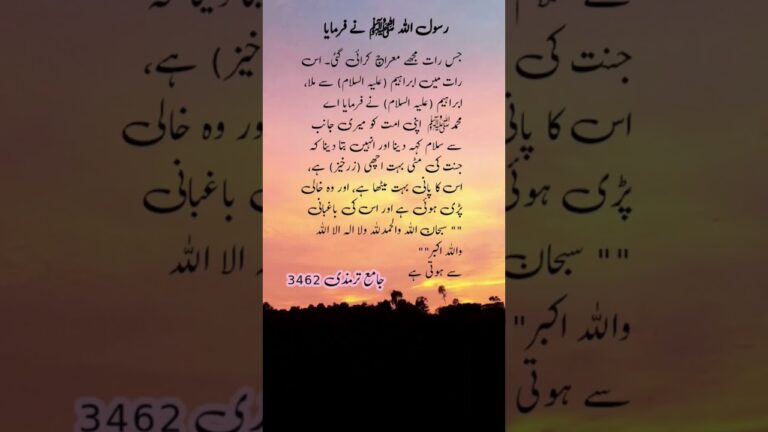 رسول اللہ ﷺ نے فرمایا
جس رات مجھے معراج کرائی گئی۔ اس
رات میں ابراہیم (علیہ السلام) سے ملا،
ابراہیم (علیہ السلام) نے فرمایا اے
محمدﷺ اپنی امت کو میری جانب
سے سلام کہہ دینا اور انہیں بتا دینا کہ
جنت کی مٹی بہت اچھی (زرخیز) ہے،
اس کا پانی بہت میٹھا ہے، اور وہ خالی
پڑی ہوئی ہے اور اس کی باغبانی
"" سبحان اللہ والحمدللہ ولا الہ الا اللہ
واللہ اکبر""
سے ہوتی ہے
جامع ترمذی 3462